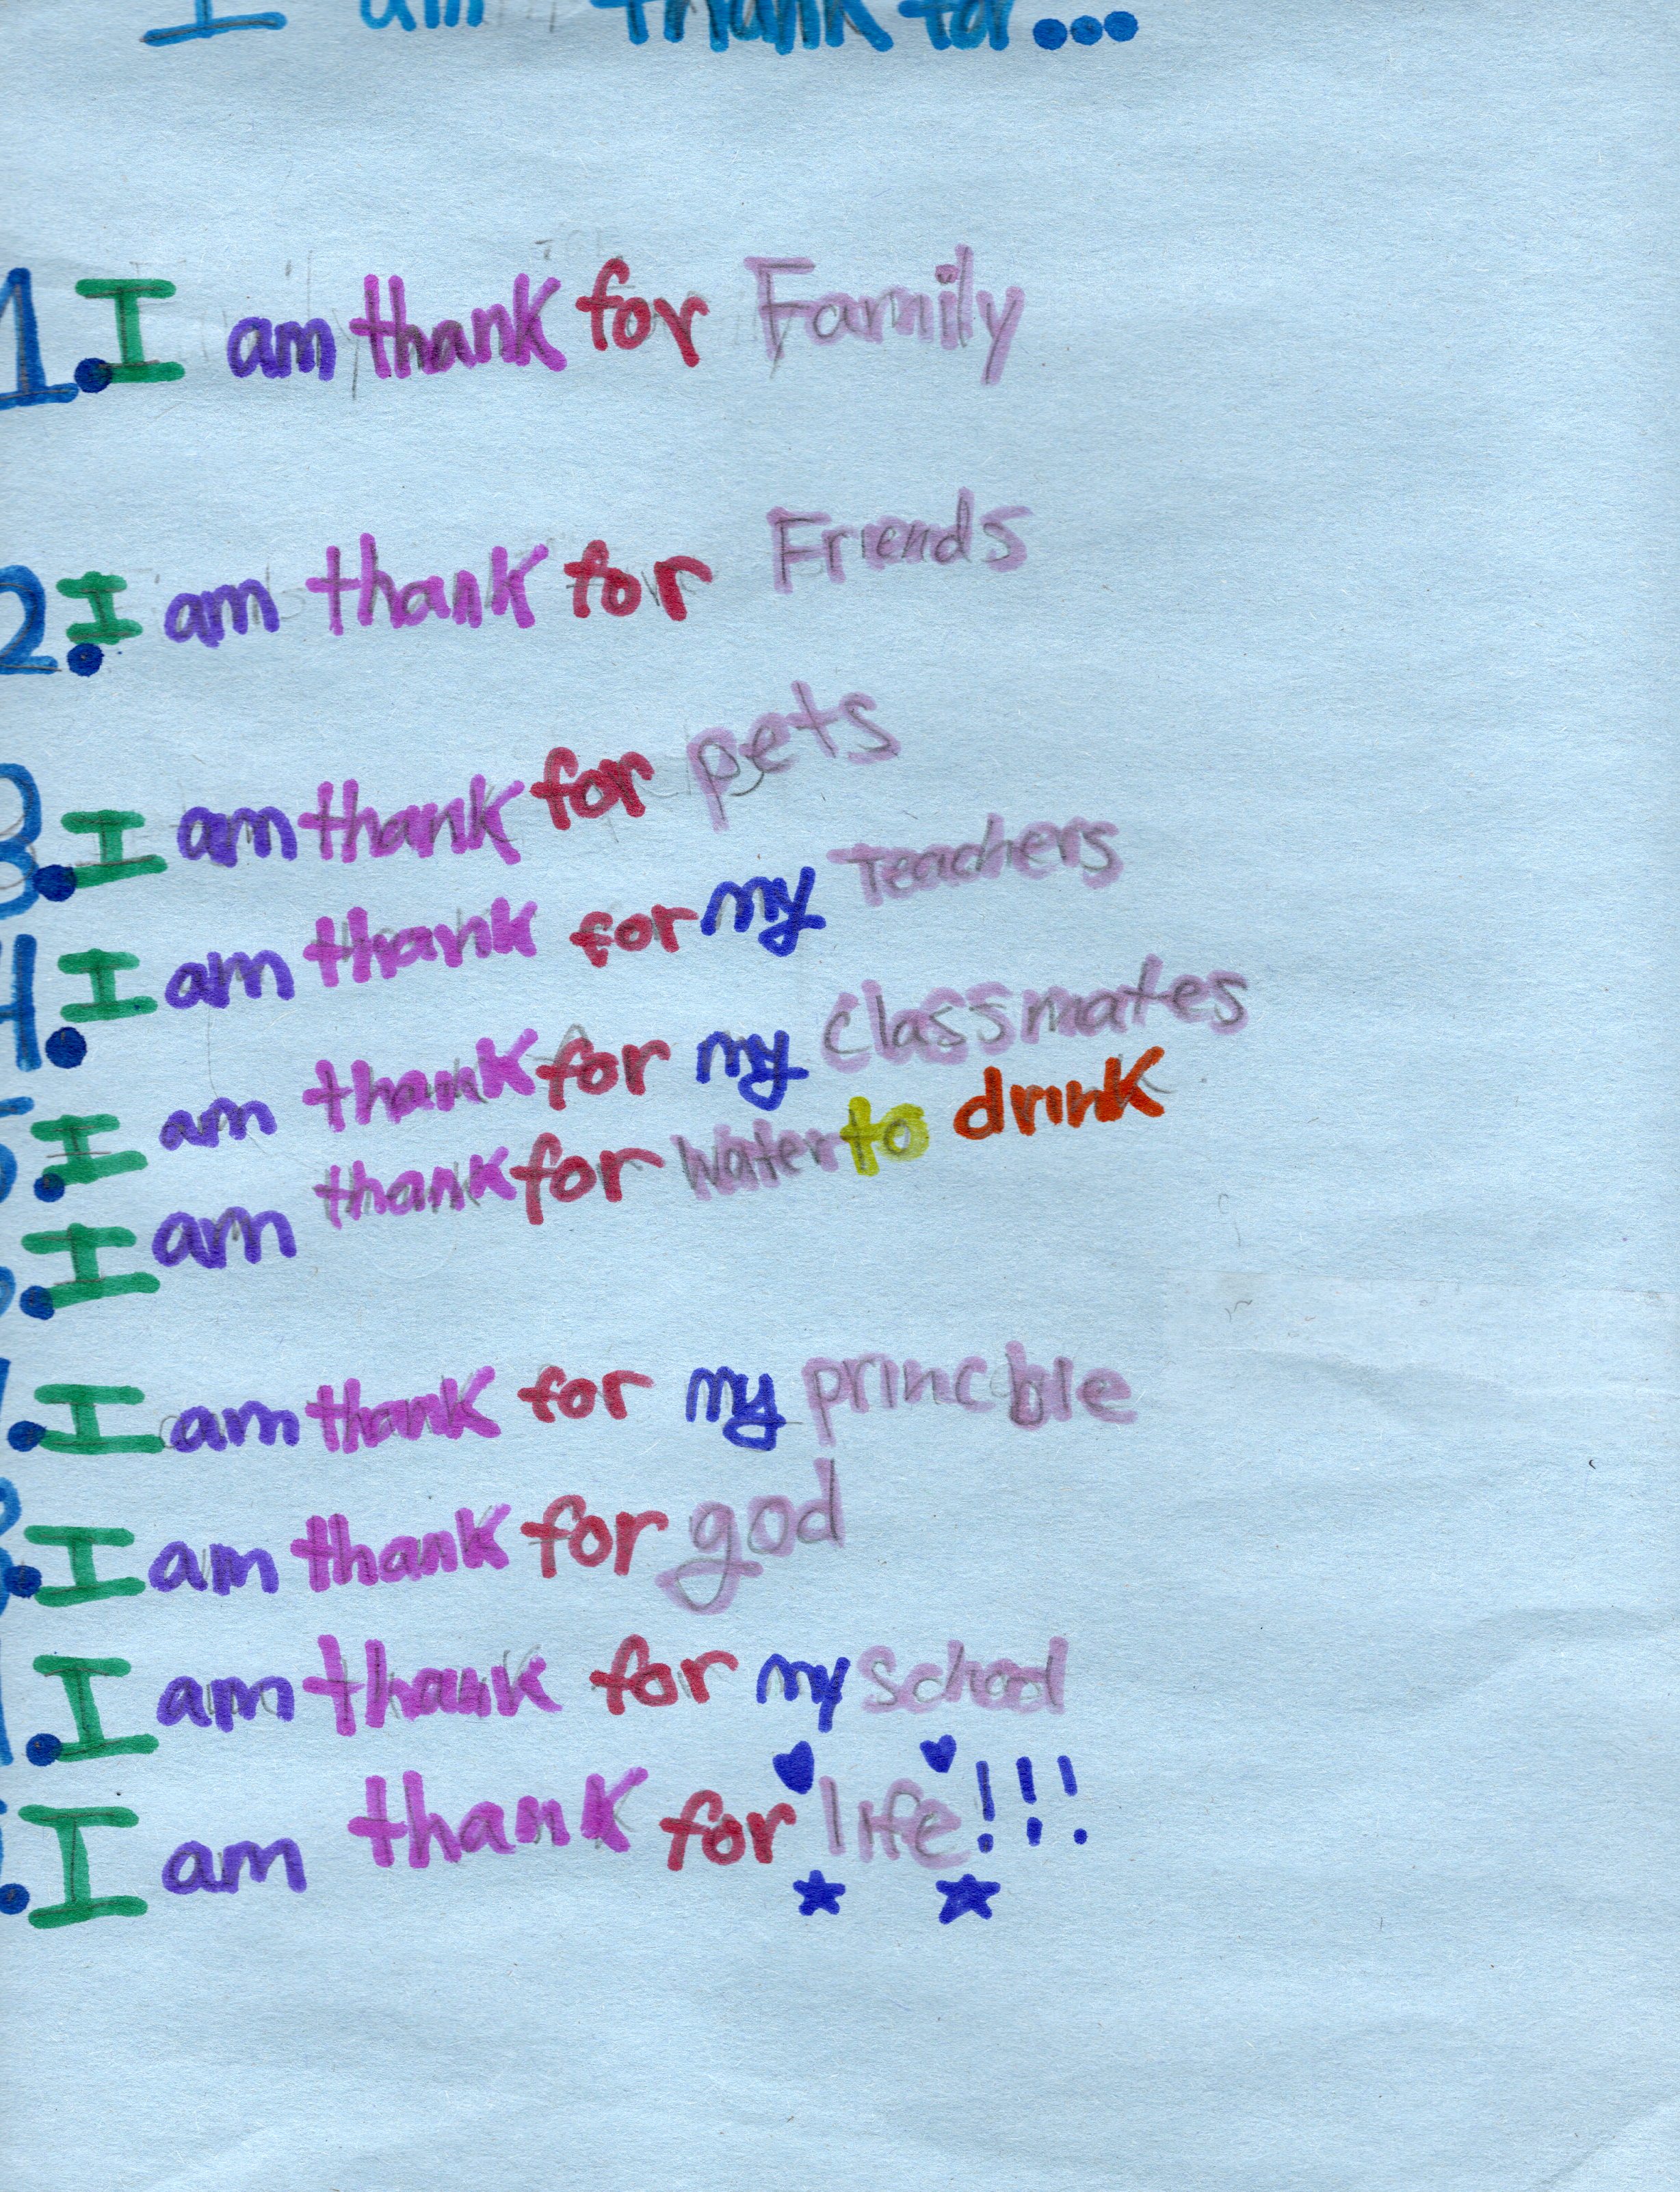 I am thank for...
1. I am thank for Family
2. I am thank for Friends
3. I am thank for pets
4. I am thank for my Teachers
5. I am thank for my Classmates
6. I am thank for water to drink
7. I am thank for my princble
8. I am thank for god
9. I am thank for my school
. I am thank for life!!!